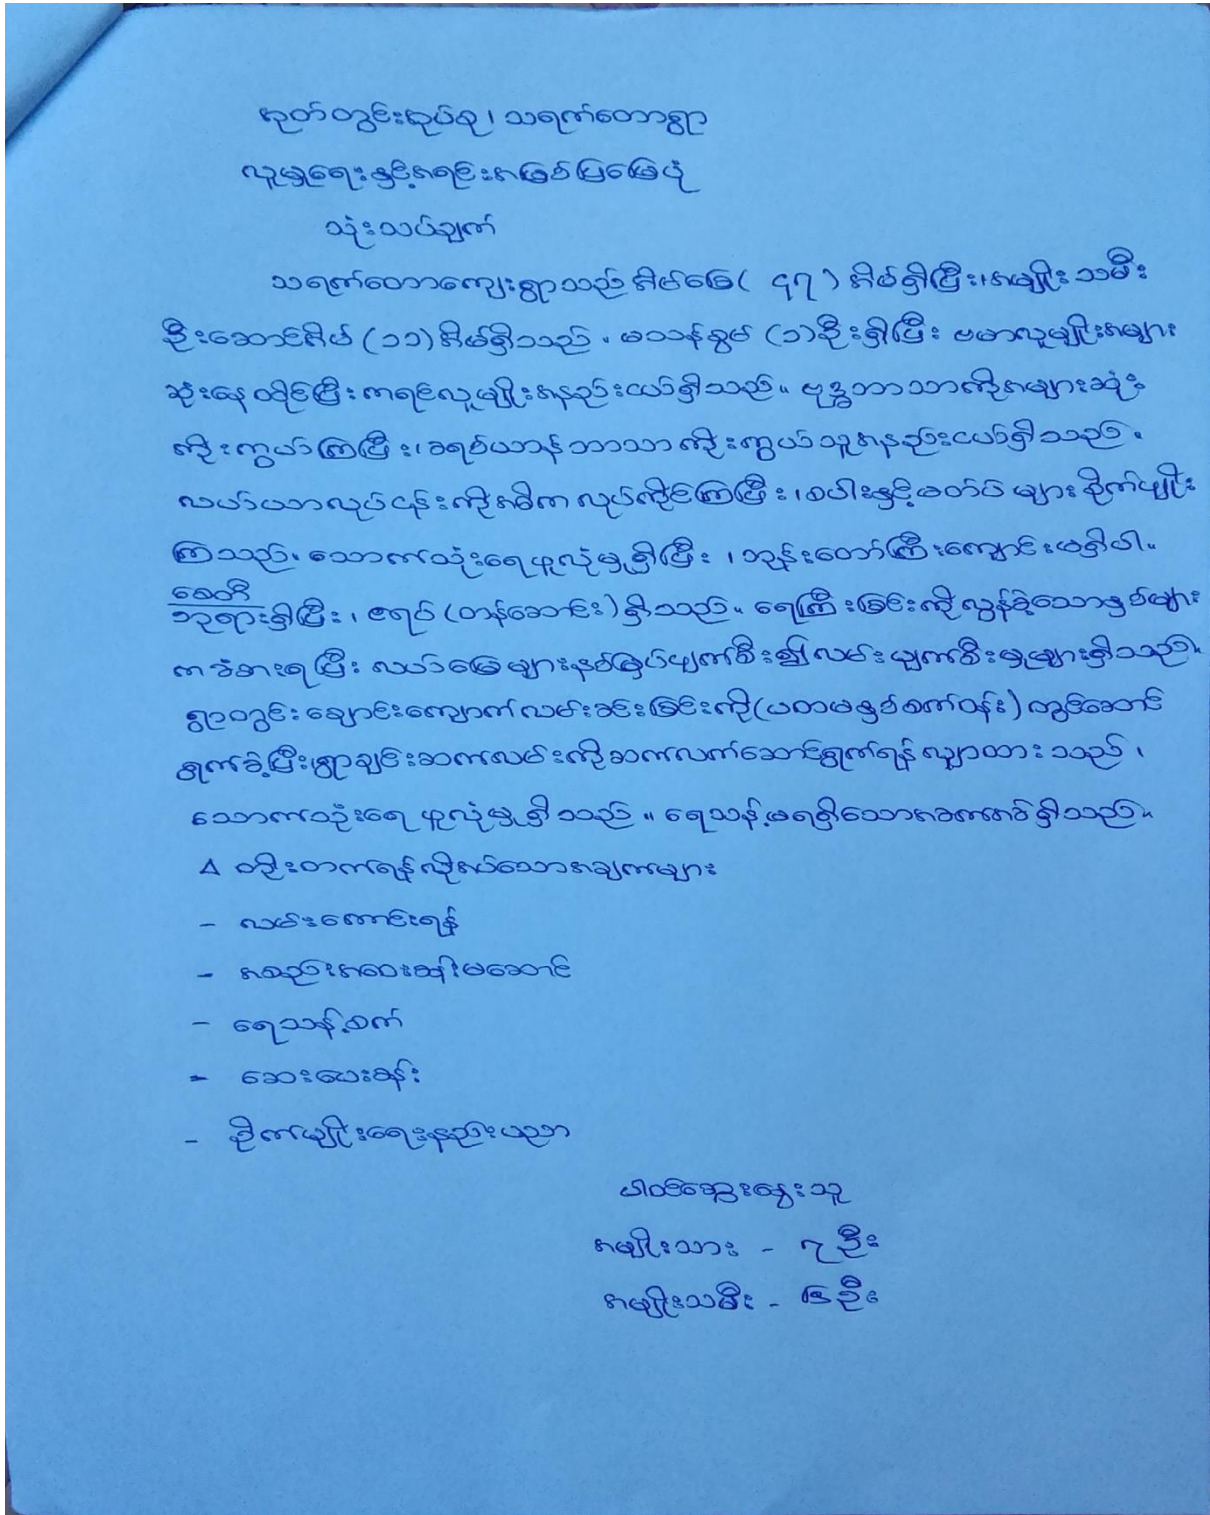 အုတ်တွင်းအုပ်စု၊ သရက်တောရွာ
လူမှုရေးနှင့်အရင်းအမြစ်ပြမြေပုံ
သုံးသပ်ချက်
သရက်တောကျေးရွာသည် အိမ်ခြေ( ၄၇ ) အိမ်ရှိပြီး၊ အမျိုးသမီး
ဦးဆောင်အိမ် (၁၁) အိမ်ရှိသည်။ မသန်စွမ် (၁)ဦးရှိပြီး ဗမာလူမျိုးအများ
ဆုံးနေထိုင်ပြီး ကရင်လူမျိုးအနည်းငယ်ရှိသည်။ ဗုဒ္ဓဘာသာကိုအများဆုံး
ကိုးကွယ်ကြပြီး၊ ခရစ်ယာန်ဘာသာကိုးကွယ်သူအနည်းငယ်ရှိသည်။
လယ်ယာလုပ်ငန်းကိုအဓိက လုပ်ကိုင်ကြပြီး၊ စပါးနှင့်မတ်ပဲ များ စိုက်ပျိုး
ကြသည်။ သောက်သုံးရေဖူလုံမှုရှိပြီး ၊ ဘုန်းတော်ကြီးကျောင်းမရှိပါ။
စေတီ
ဘုရားရှိပြီး၊ ဇရပ် (တန်ဆောင်း) ရှိသည်။ ရေကြီးခြင်းကိုလွန်ခဲ့သောနှစ်များ
က ခံစားရပြီး လယ်မြေများနစ်မြှပ်ပျက်စီး၍ လမ်းပျက်စီးမှုများရှိသည်။
ရွာတွင်းချောင်းကျောက်လမ်းခင်းခြင်းကို(ပထမနှစ်စက်ဝန်း) တွင်ဆောင်
ရွက်ခဲ့ပြီး၊ ရွာချင်းဆက်လမ်းကိုဆက်လက်ဆောင်ရွက်ရန်လျှာထားသည်၊
သောက်သုံးရေ ဖူလုံမှုရှိသည်။ ရေသန့်မရရှိသောအခက်အခဲရှိသည်။
∆ တိုးတက်ရန်လိုအပ်သောအချက်များ
- လမ်းကောင်းရန်
- အစည်းအဝေးခန်းမဆောင်
- ရေသန့်စက်
- ဆေးပေးခန်း
- စိုက်ပျိုးရေးနည်းပညာ
ပါဝင်ဆွေးနွေးသူ
အမျိုးသား - ၇ ဦး
အမျိုးသမီး - ၆ဦး